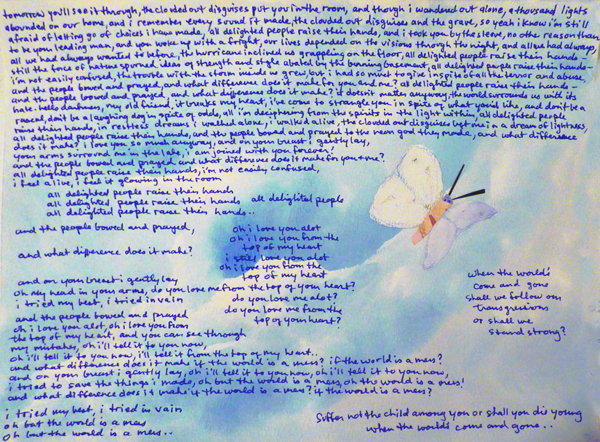 tomorrow you'll see it through, the clouded out disguises put you in the room, and though i wandered out alone, a thousand lights
abounded on our home, and i remember every sound it made, the clouded out disguises and the grave, so yeah i know i'm still
afraid of letting go of choices i have made, all delighted people raise their hands, and i took you by the sleeve, no other reason than
to be your leading man, and you woke up with a fright, our lives depended on the visions through the night, and all we had always,
all we had always wanted it before, the hurricane inclined us grappling on the floor, all delighted people raise their hands--
still the force of nature spurned ideas of strength and style abated by the burning because, all delighted people raise their hands--
i'm not easily confused, the trouble with the storm inside us grew, but i had so much to give in spite of all the terror and abuse,
and the people bowed and prayed, and what difference does it make for you and me? all delighted people raise their hands--
and the people bowed and prayed, and what difference does it make? it doesn't matter anyway, the world surrounds us with its
hate. hello darkness my old friend, it breaks my heart, i've come to strangle you in spite of what you'd like, and don't be a
rascal, don't be a laughing dog in spite of odds, all i'm deciphering from the spirits in the light within, all delighted people
raise their hands, in restless dreams i walked alone, i walked alone, the clouded out disguises before us in a dream of lightness,
all delighted people raise their hands, and the people bowed and prayed to the neon god they made, and what difference
does it make? i love you so much anyway, and on your breast i gently lay,
your arms surround me in the lake, i am joined with you forever!
and the people bowed and prayed. what difference does it make for you & me?
all delighted people raise their hands, i'm not easily confused,
i feel alive, i feel it glowing in the room
all delighted people raise their hands
all delighted people raise their hands all delighted people
all delighted people raise their hands..
and the people bowed and prayed,
oh i love you alot
oh i love you from the
top of my heart
and what difference does it make?
i still love you alot
oh i love you from the
top of my heart
and on your breast i gently lay
oh my head in your arms, do you love me from the top of your heart?
i tried my best, i tried in vain
do you love me alot?
do you love me from the
top of your heart?
and the people bowed and prayed
oh i love you alot, oh i love you from
the top of my heart, and you can see through
my mistakes, oh i'll tell it to you now,
oh i'll tell it to you now, i'll tell it from the top of my heart..
and what difference does it make if the world is a mess? if the world is a mess?
and on your breast i gently lay, oh i'll tell it to you now, oh i'll tell it to you now,
i tried to save the things i made, oh but the world is a mess, oh the world is a mess!
and what difference does it make if the world is a mess? if the world is a mess?
i tried my best, i tried in vain
oh but the world is a mess
oh but the world is a mess..
when the world's
come and gone
shall we follow our
transgressions
or shall we
stand strong?
Suffer not the child among you or shall you die young
when the worlds come and gone..